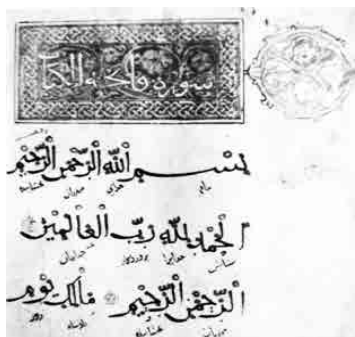 سورة فاتحة الكتاب
بسم الله الرحمن الرحيم
بنام خدای مهربان بخشاینده
الحمد لله رب العالمين
ستایش خدایرا پروردگار جهانیان
الرحمن الرحيم مالك يوم
مهربان بخشاینده پادشاه روز